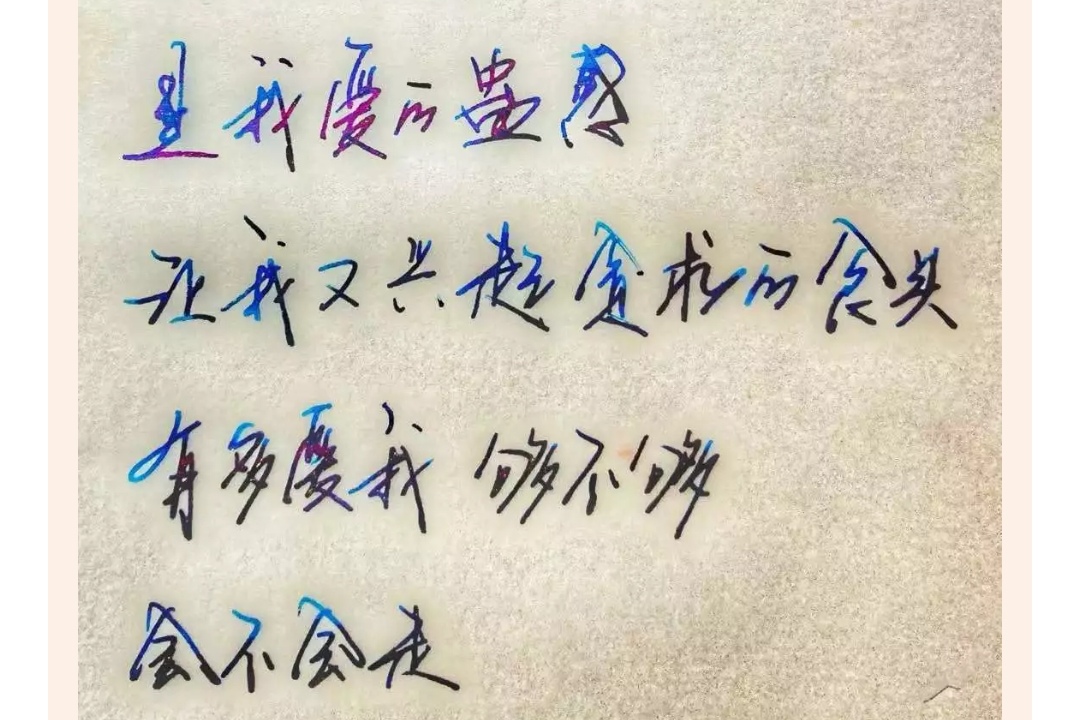 是我爱的蛊惑
让我又兴起贪求的念头
有多爱我 够不够
会不会走